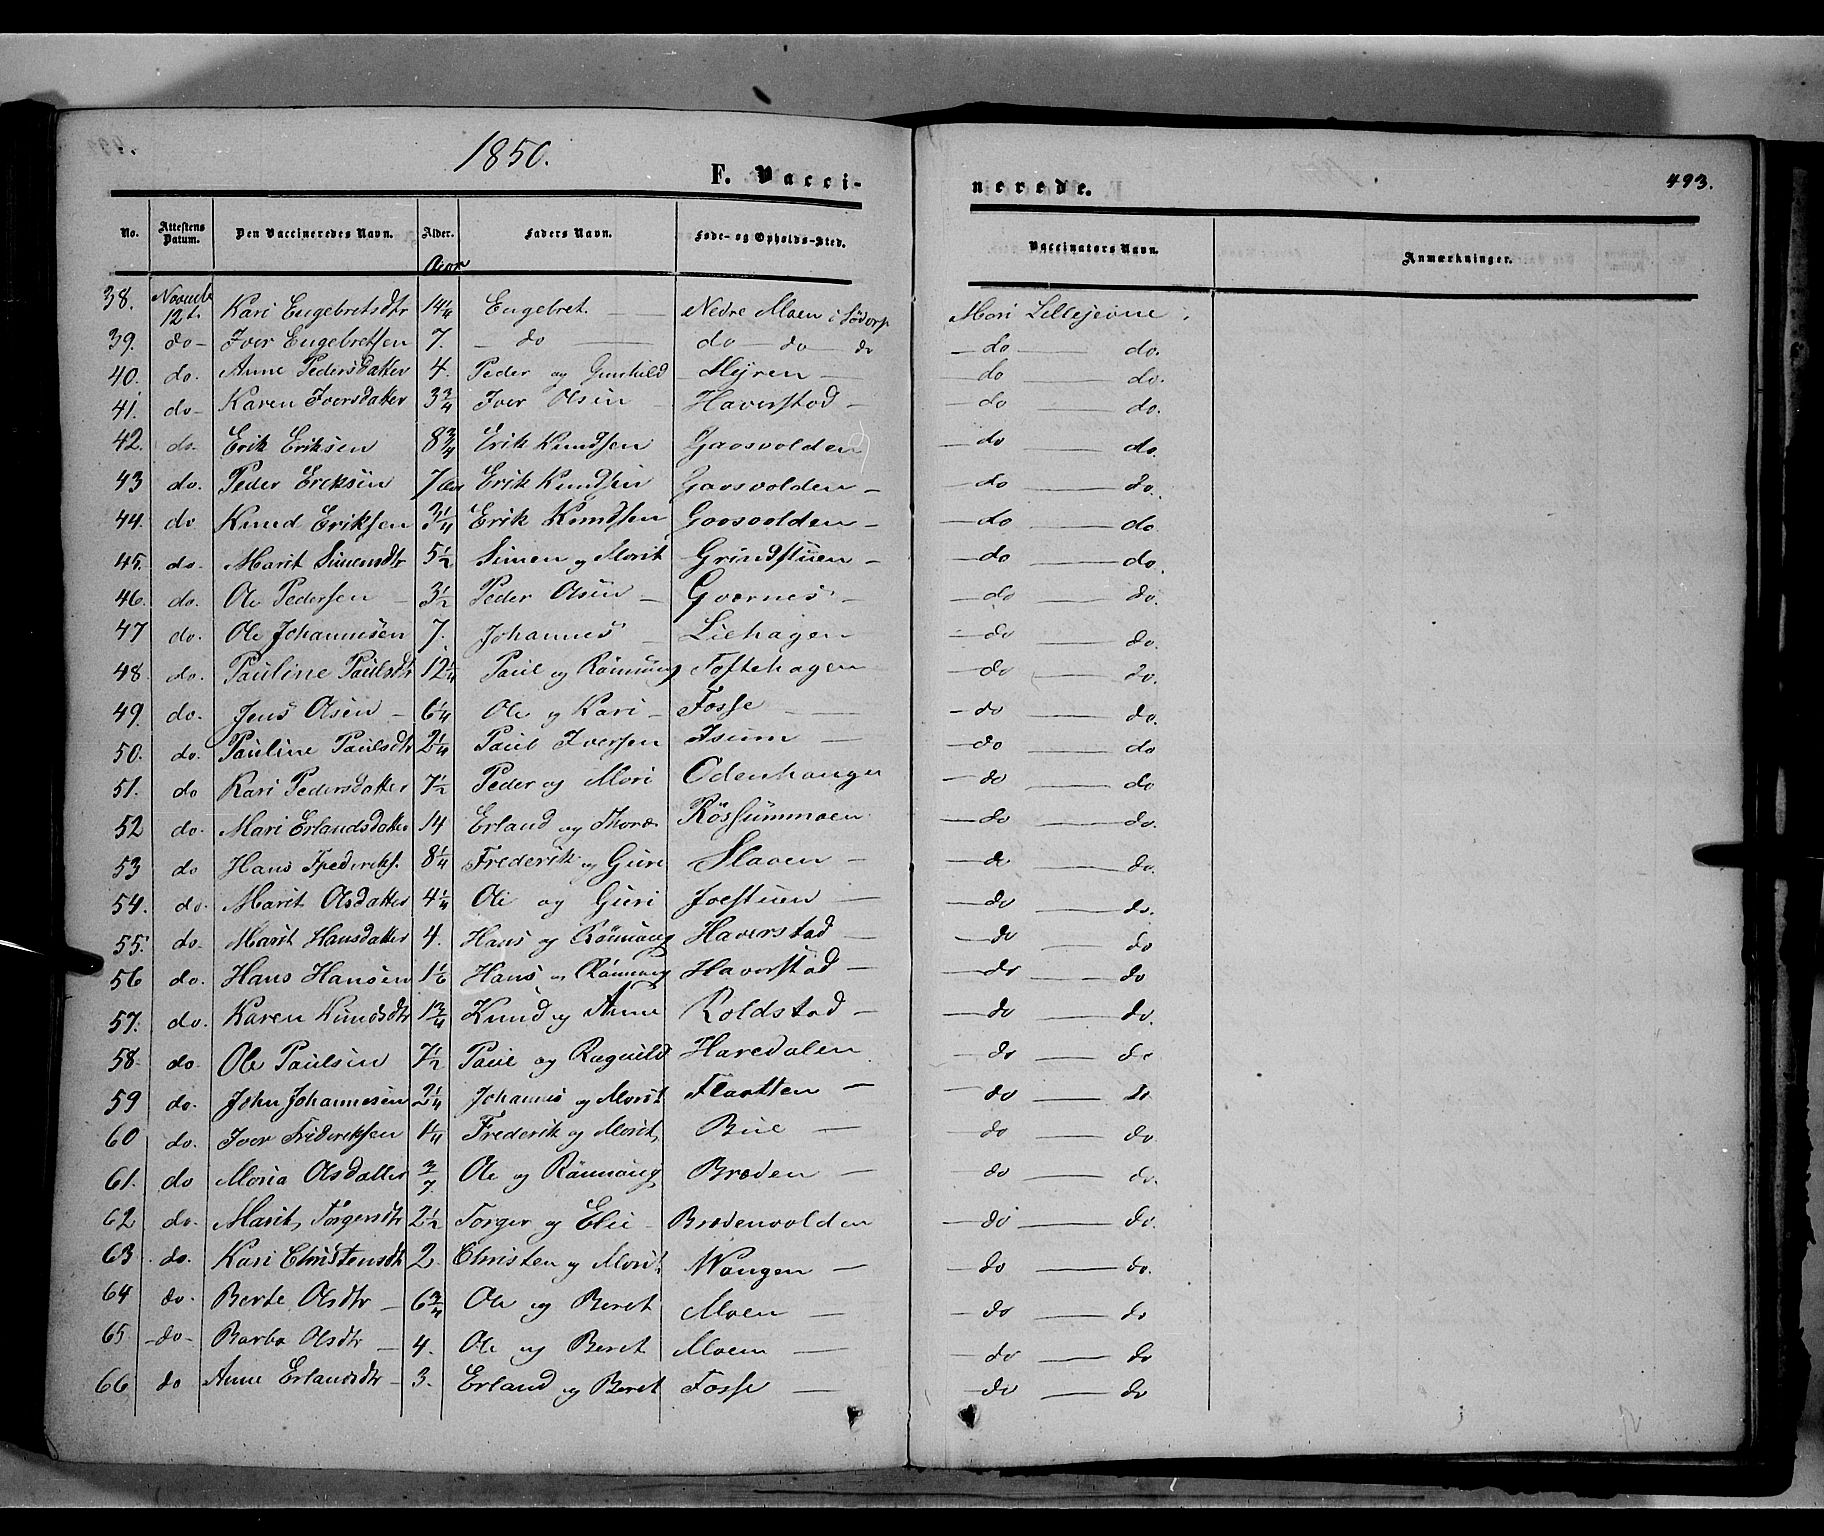 1850.
F. Vacci-
nerede.
493.
No. Attestens Datum. Den Vaccineredes Navn. Alder. Faders Navn. Føde- og Opholds-Sted. Vaccinators Navn. Anmærkninger.
Aar
38. Novembr 12t. Kari Engebretsdtr 14 1/4 Engebret. Nedre Moen i Södorp Mari Lillejevne.
39. do- Iver Engebretsen 7. - do - do - do do - do - do.
40. do. Anne Pedersdatter 4. Peder og Gunhild Myren - - do - do.
41. do- Karen Iversdatter 3 3/4 Iver Olsen - Haverstad - - do - do.
42. do. Erik Eriksen 8 3/4 Erik Knudsen Gaasvolden - do - do.
43 do. Peder Eriksen 7 aar Erik Knudsen Gaasvolden - - do - do.
44. do Knud Eriksen 3 1/4 Erik Knudsen Gaasvolden - - do - do.
45. do. Marit Simensdtr 5 1/2 Simen og Marit Grindstuen - - do - do.
46. do. Ole Pedersen - 3 1/2 Peder Olsen - Qvernes - - do - do.
47 do. Ole Johannesen 7. Johannes - Liehagen - do - do.
48. do. Pauline Paulsdtr 12 1/4 Paul og Rönnaug Toftehagen - do - do.
49. do. Jens Olsen - 6 1/4 Ole og Kari - Fosse - - do - do.
50. do. Pauline Paulsdtr 2 1/4 Paul Iversen Isum - - do - do
51. do Kari Pedersdatter 7 1/2 Peder og Mari Odenhaugen - do - do
52 do. Mari Erlandsdatter 14 Erland og Thora Rössummoen - do - do.
53 do Hans Frederiks. 8 1/4 Frederik og Guri Slaaen - - do - do.
54. do. Marit Olsdatter 4 1/4 Ole og Guri - do - do.
55. do. Marit Hansdatter 4. Hans og Rönnaug Haverstad - - do - do
56 do. Hans Hansen 1 1/2 Hans og Rönnaug Haverstad - - do - do
57. do. Karen Knudsdtr 1 3/4 Knud og Anne Roldstad - - do - do.
58. do. Ole Paulsen 7 1/2 Paul og Ragnild Haredalen - do - do
59 do. John Johannesen 2 1/4 Johannes og Marit Flaatten - - do - do
60 do. Iver Frideriksen 1/4 Frederik og Marit Bue - - do - do.
61. do Maria Olsdatter Ole og Rönnaug Braden - - do - do.
62 do. Marit Torgersdtr 2 1/2 Torger og Eli - Bradenvolden - do - do.
63. do. Kari Christensdtr 2. Christen og Marit Wangen - - do - do.
64 do. Berte Olsdtr - 6 3/4 Ole og Beret Moen - - do - do
65. -do- Barbo Olsdtr - 4. Ole og Beret Moen - - do - do
66 do Anne Erlandsdtr - 3. Erland og Beret Fosse - - do - do